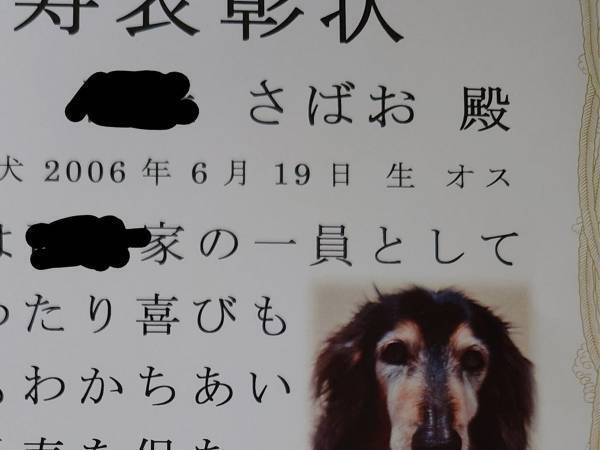 寿表彰状
さばお 殿
犬 2006年6月19日 生 オス
は 家の一員として
ったり喜びも
もわかちあい